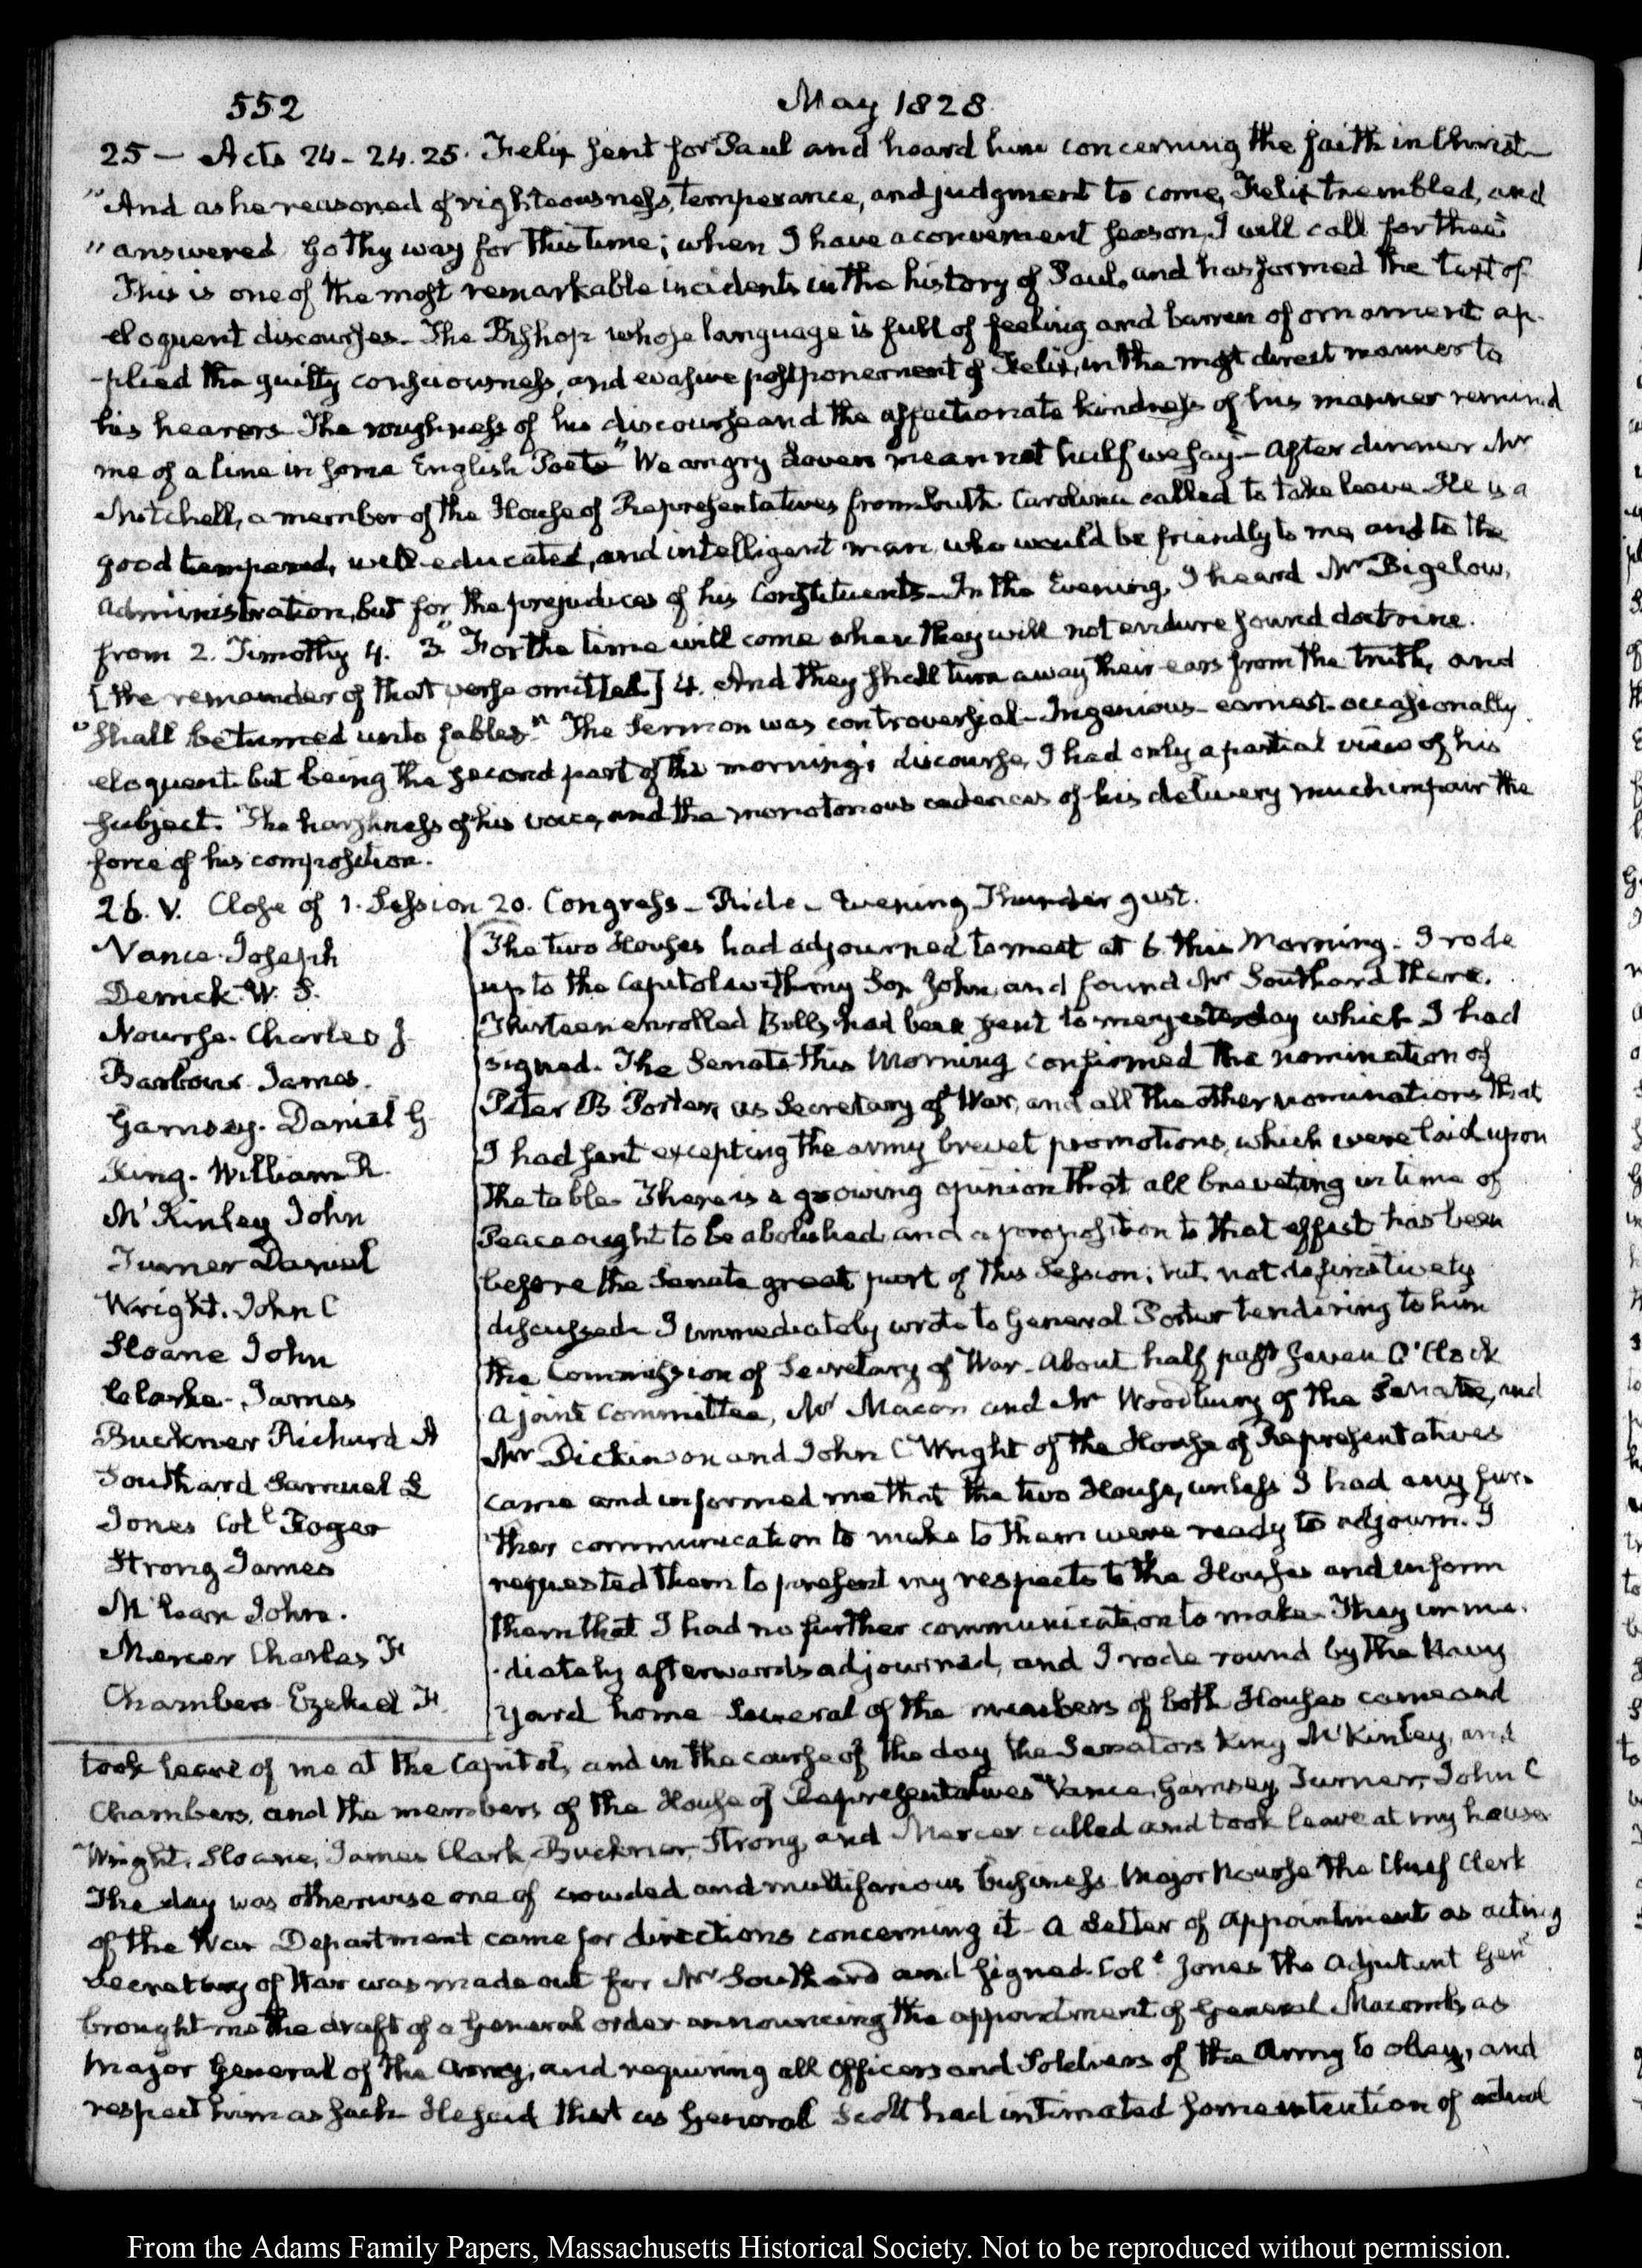 552 May 1828
25 — Acts 24 - 24. 25. Felix sent for Paul and heard him concerning the faith in Christ
"And as he reasoned of righteousness, temperance, and judgment to come, Felix trembled, and
"answered Go thy way for this time; when I have a convenient season, I will call for thee"
This is one of the most remarkable incidents in the history of Paul, and has formed the text of
eloquent discourses. The Bishop whose language is full of feeling and barren of ornament ap-
-plied the guilty consciousness, and evasive postponement of Felix, in the most direct manner to
his hearers. The roughness of his discourse and the affectionate kindness of his manner remind
me of a line in some English Poets "We angry lovers mean not half we say"— After dinner Mr
Mitchell, a member of the House of Representatives from South Carolina called to take leave. He is a
good tempered, well educated, and intelligent man, who would be friendly to me, and to the
Administration, but for the prejudices of his Constituents— In the Evening, I heard Mr Bigelow,
from 2. Timothy 4. 3. "For the time will come when they will not endure sound doctrine.
[the remainder of that verse omitted] 4. And they shall turn away their ears from the truth, and
"shall be turned unto fables." The Sermon was controversial— Ingenious— earnest— occasionally
eloquent but being the second part of the morning's discourse, I had only a partial view of his
subject. The harshness of his voice, and the monotonous cadences of his delivery much impair the
force of his composition.
26. V. Close of 1. Session 20. Congress— Ride— Evening Thunder gust.
Vance. Joseph
Derrick. W. S.
Nourse. Charles J.
Barbour. James.
Garnsey. Daniel G
King. William R.
McKinley John
Turner Daniel
Wright. John C
Sloane John
Clarke. James
Buckner Richard A
Southard Samuel L
Jones Coll Roger
Strong James
McLean John.
Mercer Charles F
Chambers Ezekiel F.
The two Houses had adjourned to meet at 6. this Morning. I rode
up to the Capitol with my Son John, and found Mr Southard there.
Thirteen enrolled Bills had been sent to me yesterday which I had
signed. The Senate this Morning confirmed the nomination of
Peter B. Porter, as Secretary of War, and all the other nominations that
I had sent excepting the army brevet promotions, which were laid upon
the table. There is a growing opinion that all breveting in time of
Peace ought to be abolished, and a proposition to that effect has been
before the Senate great part of this Session; but not definitively
discussed. I immediately wrote to General Porter tendering to him
the Commission of Secretary of War. About half past seven O'Clock
a joint Committee, Mr Macon and Mr Woodbury of the Senate, and
Mr Dickinson and John C Wright of the House of Representatives
came and informed me that the two House, unless I had any fur-
ther communication to make to them were ready to adjourn. I
requested them to present my respects to the Houses and inform
them that I had no further communication to make. They imme-
-diately afterwards adjourned, and I rode round by the Navy
Yard home. Several of the members of both Houses came and
took leave of me at the Capitol, and in the course of the day the Senators King McKinley, and
Chambers, and the members of the House of Representatives Vance, Garnsey, Turner, John C
Wright, Sloane, James Clark, Buckner, Strong, and Mercer called and took leave at my house
The day was otherwise one of crowded and multifarious business. Major Nourse the Chief Clerk
of the War Department came for directions concerning it— a Letter of appointment as acting
Secretary of War was made out for Mr Southard and signed. Coll Jones the Adjutant Genl
brought me the draft of a General order announcing the appointment of General Macomb, as
Major General of the Army, and requiring all Officers and Soldiers of the Army to obey, and
respect him as such. He said that as General Scott had intimated some intention of actual
From the Adams Family Papers, Massachusetts Historical Society. Not to be reproduced without permission.